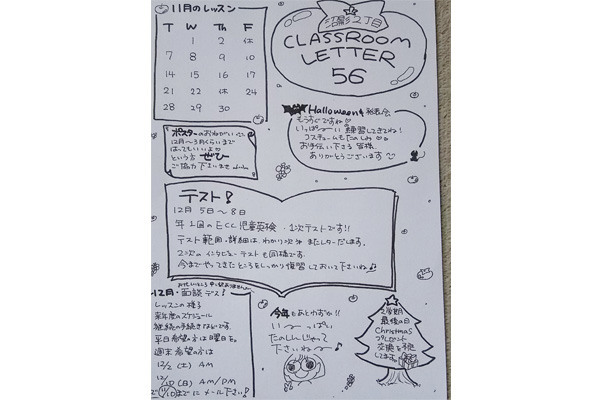 11月のレッスン
T W Th F
1 2 休
7 8 9 10
14 15 16 17
21 22 休 24
28 29 30
沼影2丁目
CLASSROOM
LETTER
56
Halloween&発表会
もうすぐですね♡
いっぱ〜い練習してきてね!
コスチュームもたのしみ♡
お手伝い下さる皆様、
ありがとうございます
ポスターのおねがい
12月〜3月くらいまで
はってもいいよ
という方ぜひ
ご協力下さいませ
テスト!
12月5日〜8日
年1回のECC児童英検、1次テストです!!
テスト範囲・詳細は、わかり次第またレターだします。
2次のインタビューテストも同様です。
今までやってきたところをしっかり復習しておいて下さいね♪
12月・面談デス!
レッスンの様子
来年度のスケジュール
継続の手続きなどです。
平日希望の方は曜日を。
週末希望の方は
12/2(土) AM
12/10(日) AM/PM
までにメール下さい!
今年もあとわずか!!
い〜っぱい
たのしんじゃって
下さいね〜♪
2学期
最後の日
Christmas
プレゼント
交換を予定
してます。